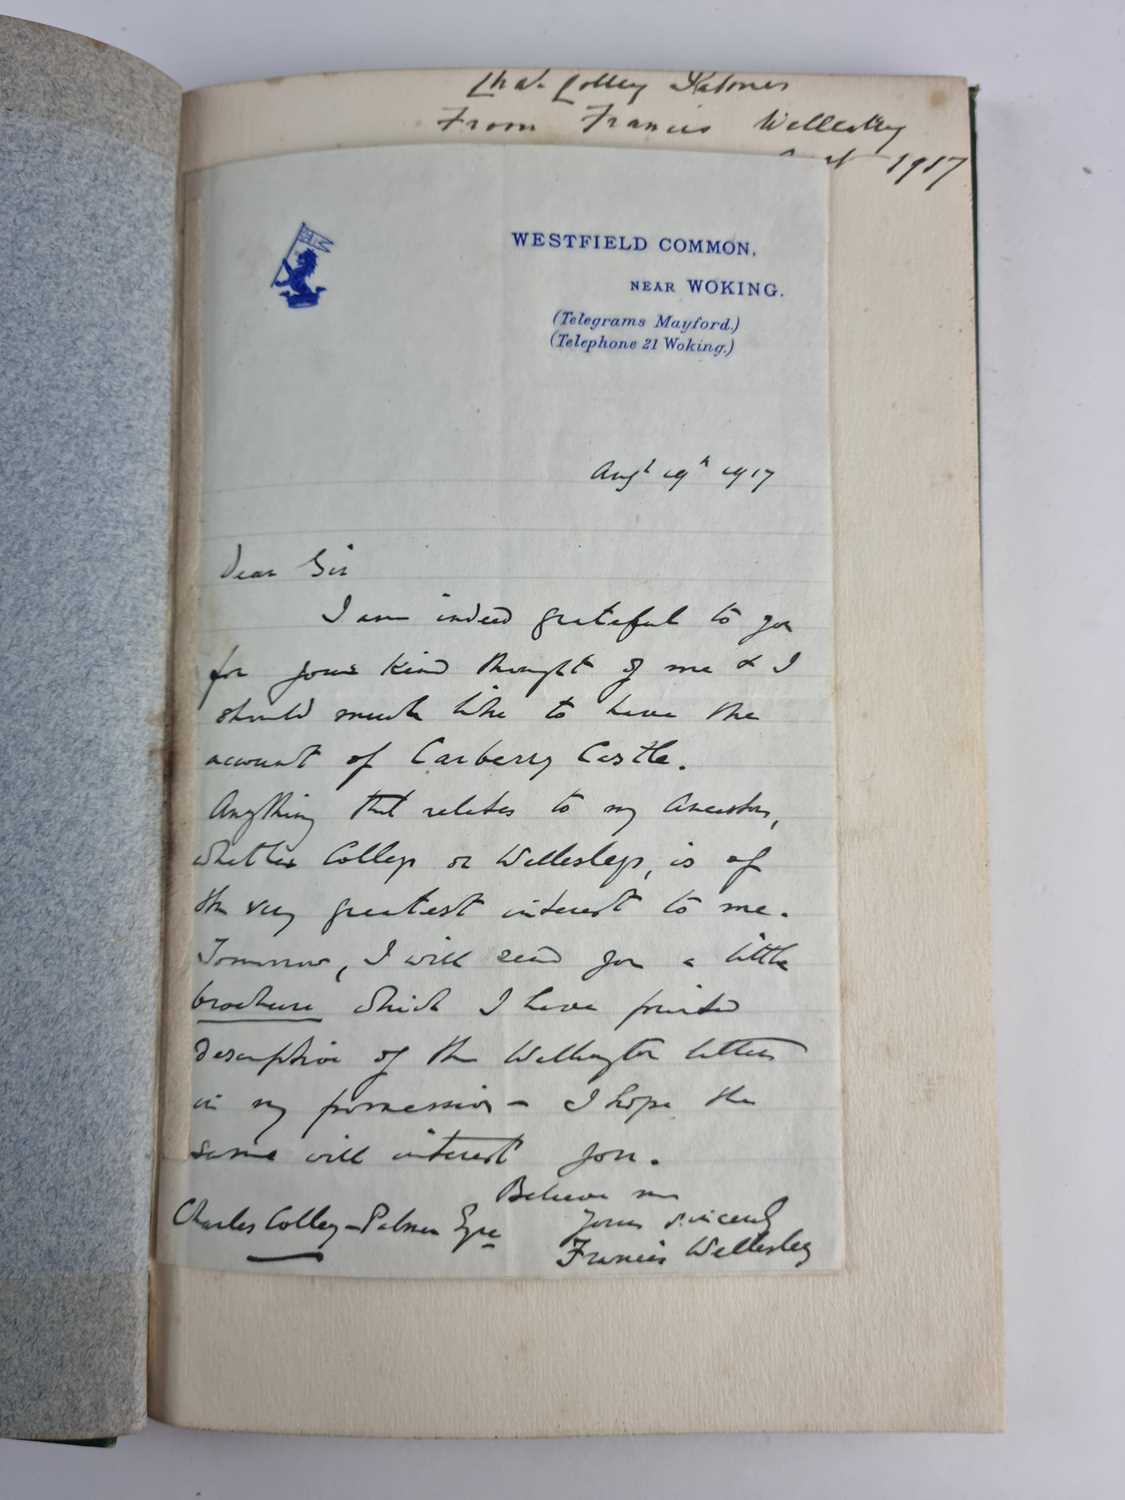 Chas. Colley Palmer
From Francis Wellesley
1917
WESTFIELD COMMON,
NEAR WOKING.
(Telegrams Mayford.)
(Telephone 21 Woking.)
Augt 19th 1917
Dear Sir
I am indeed grateful to you
for your kind thought of me & I
should much like to have the
account of Carberry Castle.
Anything that relates to my Ancestors,
whether Colleys or Wellesleys, is of
the very greatest interest to me.
Tomorrow, I will send you a little
brochure which I have printed
descriptive of the Wellington letters
in my possession - I hope the
same will interest you.
Believe me
Yours sincerely
Francis Wellesley
Charles Colley-Palmer Esqre